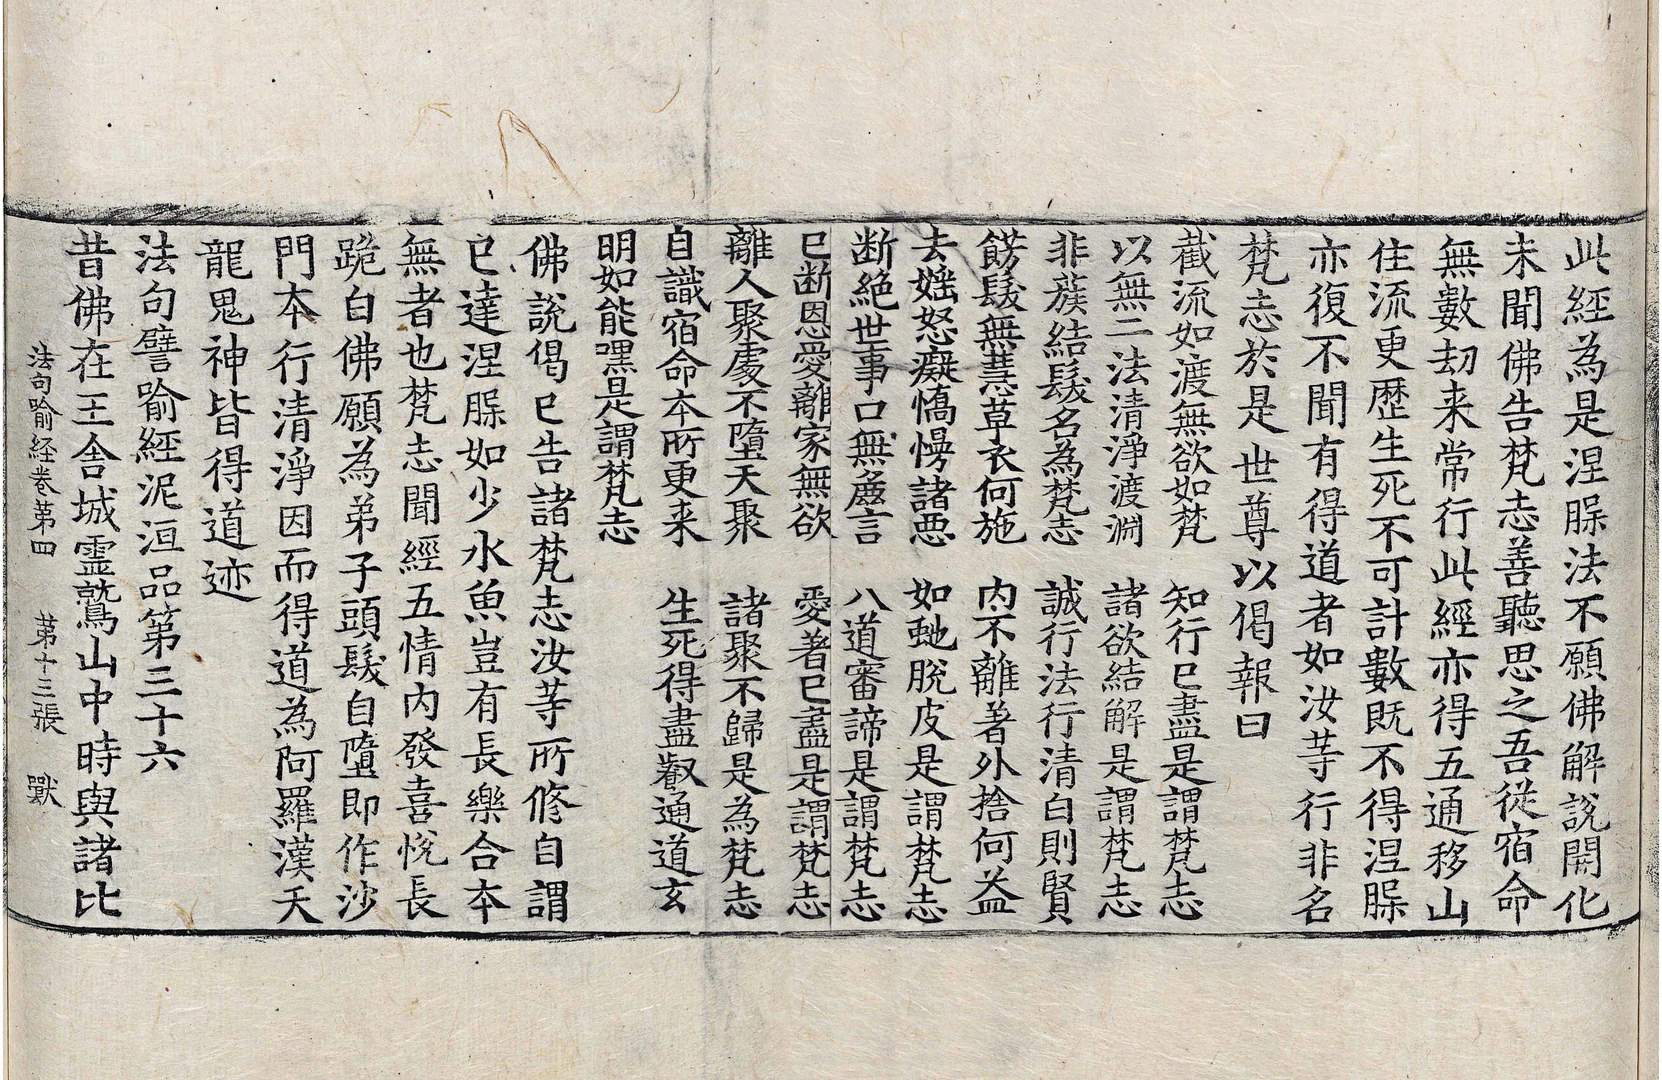 此經為是涅槃法不願佛解說開化
未聞佛告梵志善聽思之吾從宿命
無數劫来常行此經亦得五通移山
住流更歷生死不可計數既不得涅槃
亦復不聞有得道者如汝䓁行非名
梵志於是世尊以偈報曰
截流如渡無欲如梵　知行已盡是謂梵志
以無二法清淨渡淵　諸欲結解是謂梵志
非蔟結髮名為梵志　誠行法行清白則賢
餝髮無慧草衣何施　内不離著外捨何益
去婬怒癡憍慢諸惡　如虵脫皮是謂梵志
断絕世事口無麁言　八道審諦是謂梵志
已断恩愛離家無欲　愛著已盡是謂梵志
離人聚處不墮天聚　諸聚不歸是為梵志
自識宿命本所更来　生死得盡叡通道玄
明如能嘿是謂梵志
佛說偈已告諸梵志汝䓁所修自謂
已達涅槃如少水魚豈有長樂合本
無者也梵志聞經五情内發喜悅長
跪白佛願為弟子頭髮自墮即作沙
門本行清淨因而得道為阿羅漢天
龍鬼神皆得道迹
法句譬喻經泥洹品第三十六
昔佛在王舍城霊鷲山中時與諸比
法句喻経卷苐四　苐十三張　獸